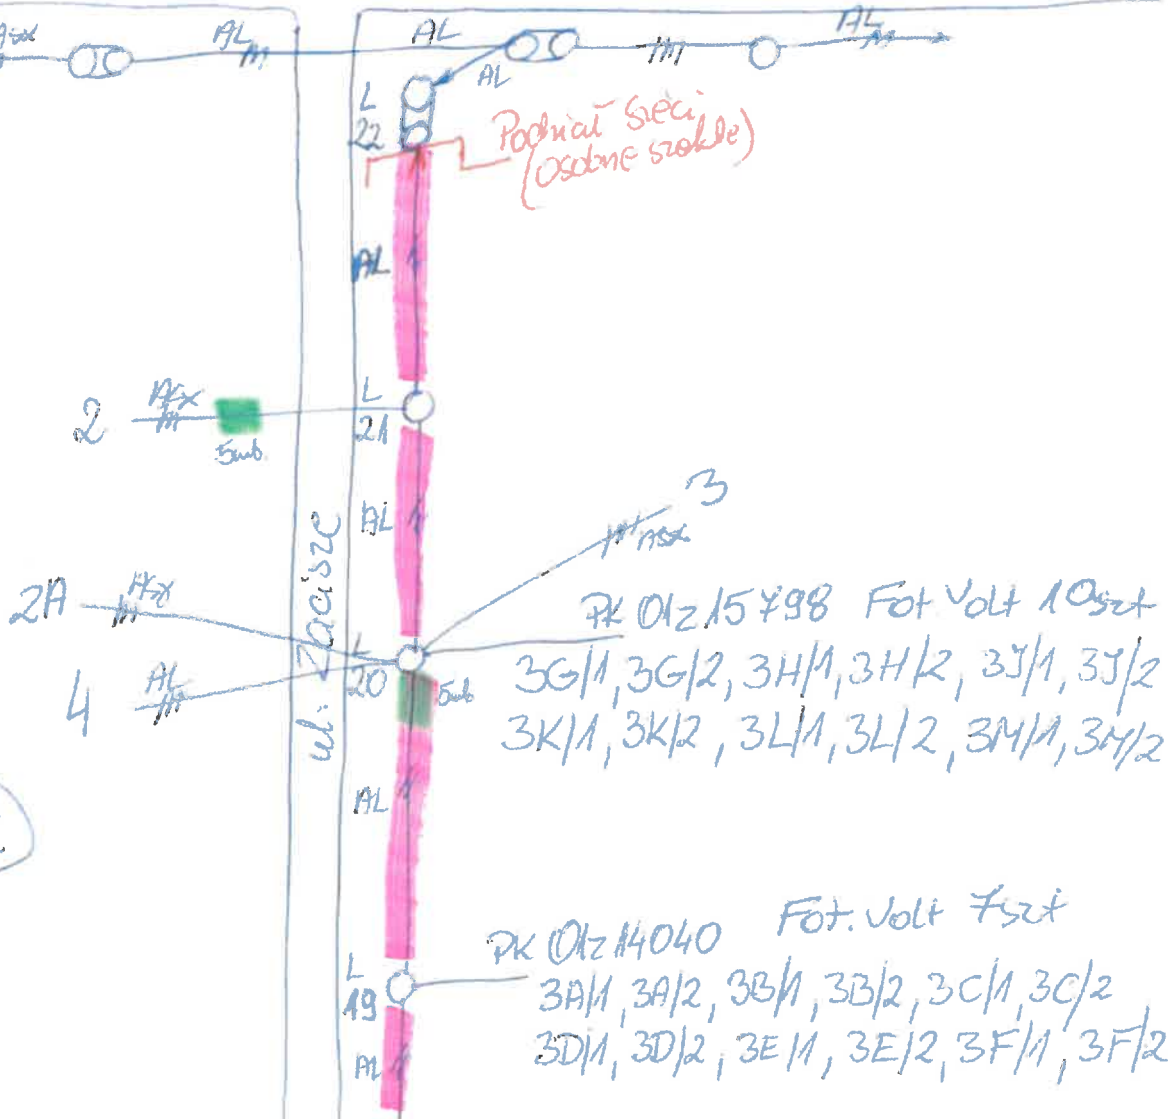 Asx
AL
AL
AL
AL
L
22
Podział sieci
(osobne szekle)
AL
2
Asx
5mb
L
21
AL
3
Asx
2A
Asx
ul. Zacisze
L
20
4
AL
5mb
PK Olz 15798 Fot Volt 10szt
3G/1, 3G/2, 3H/1, 3H/2, 3J/1, 3J/2
3K/1, 3K/2, 3L/1, 3L/2, 3M/1, 3M/2
AL
PK Olz 14040 Fot. Volt 7szt
L
19
3A/1, 3A/2, 3B/1, 3B/2, 3C/1, 3C/2
3D/1, 3D/2, 3E/1, 3E/2, 3F/1, 3F/2
AL